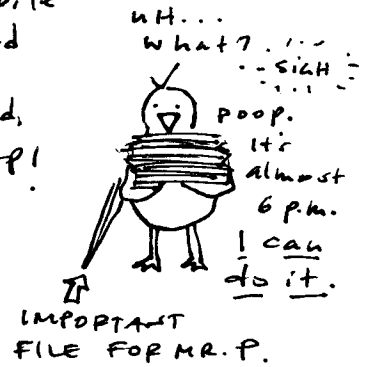 d
d,
p!
uH...
what?
SIGH
poop.
It's
almost
6 p.m.
I can
do it.
IMPORTANT
FILE FOR MR. P.